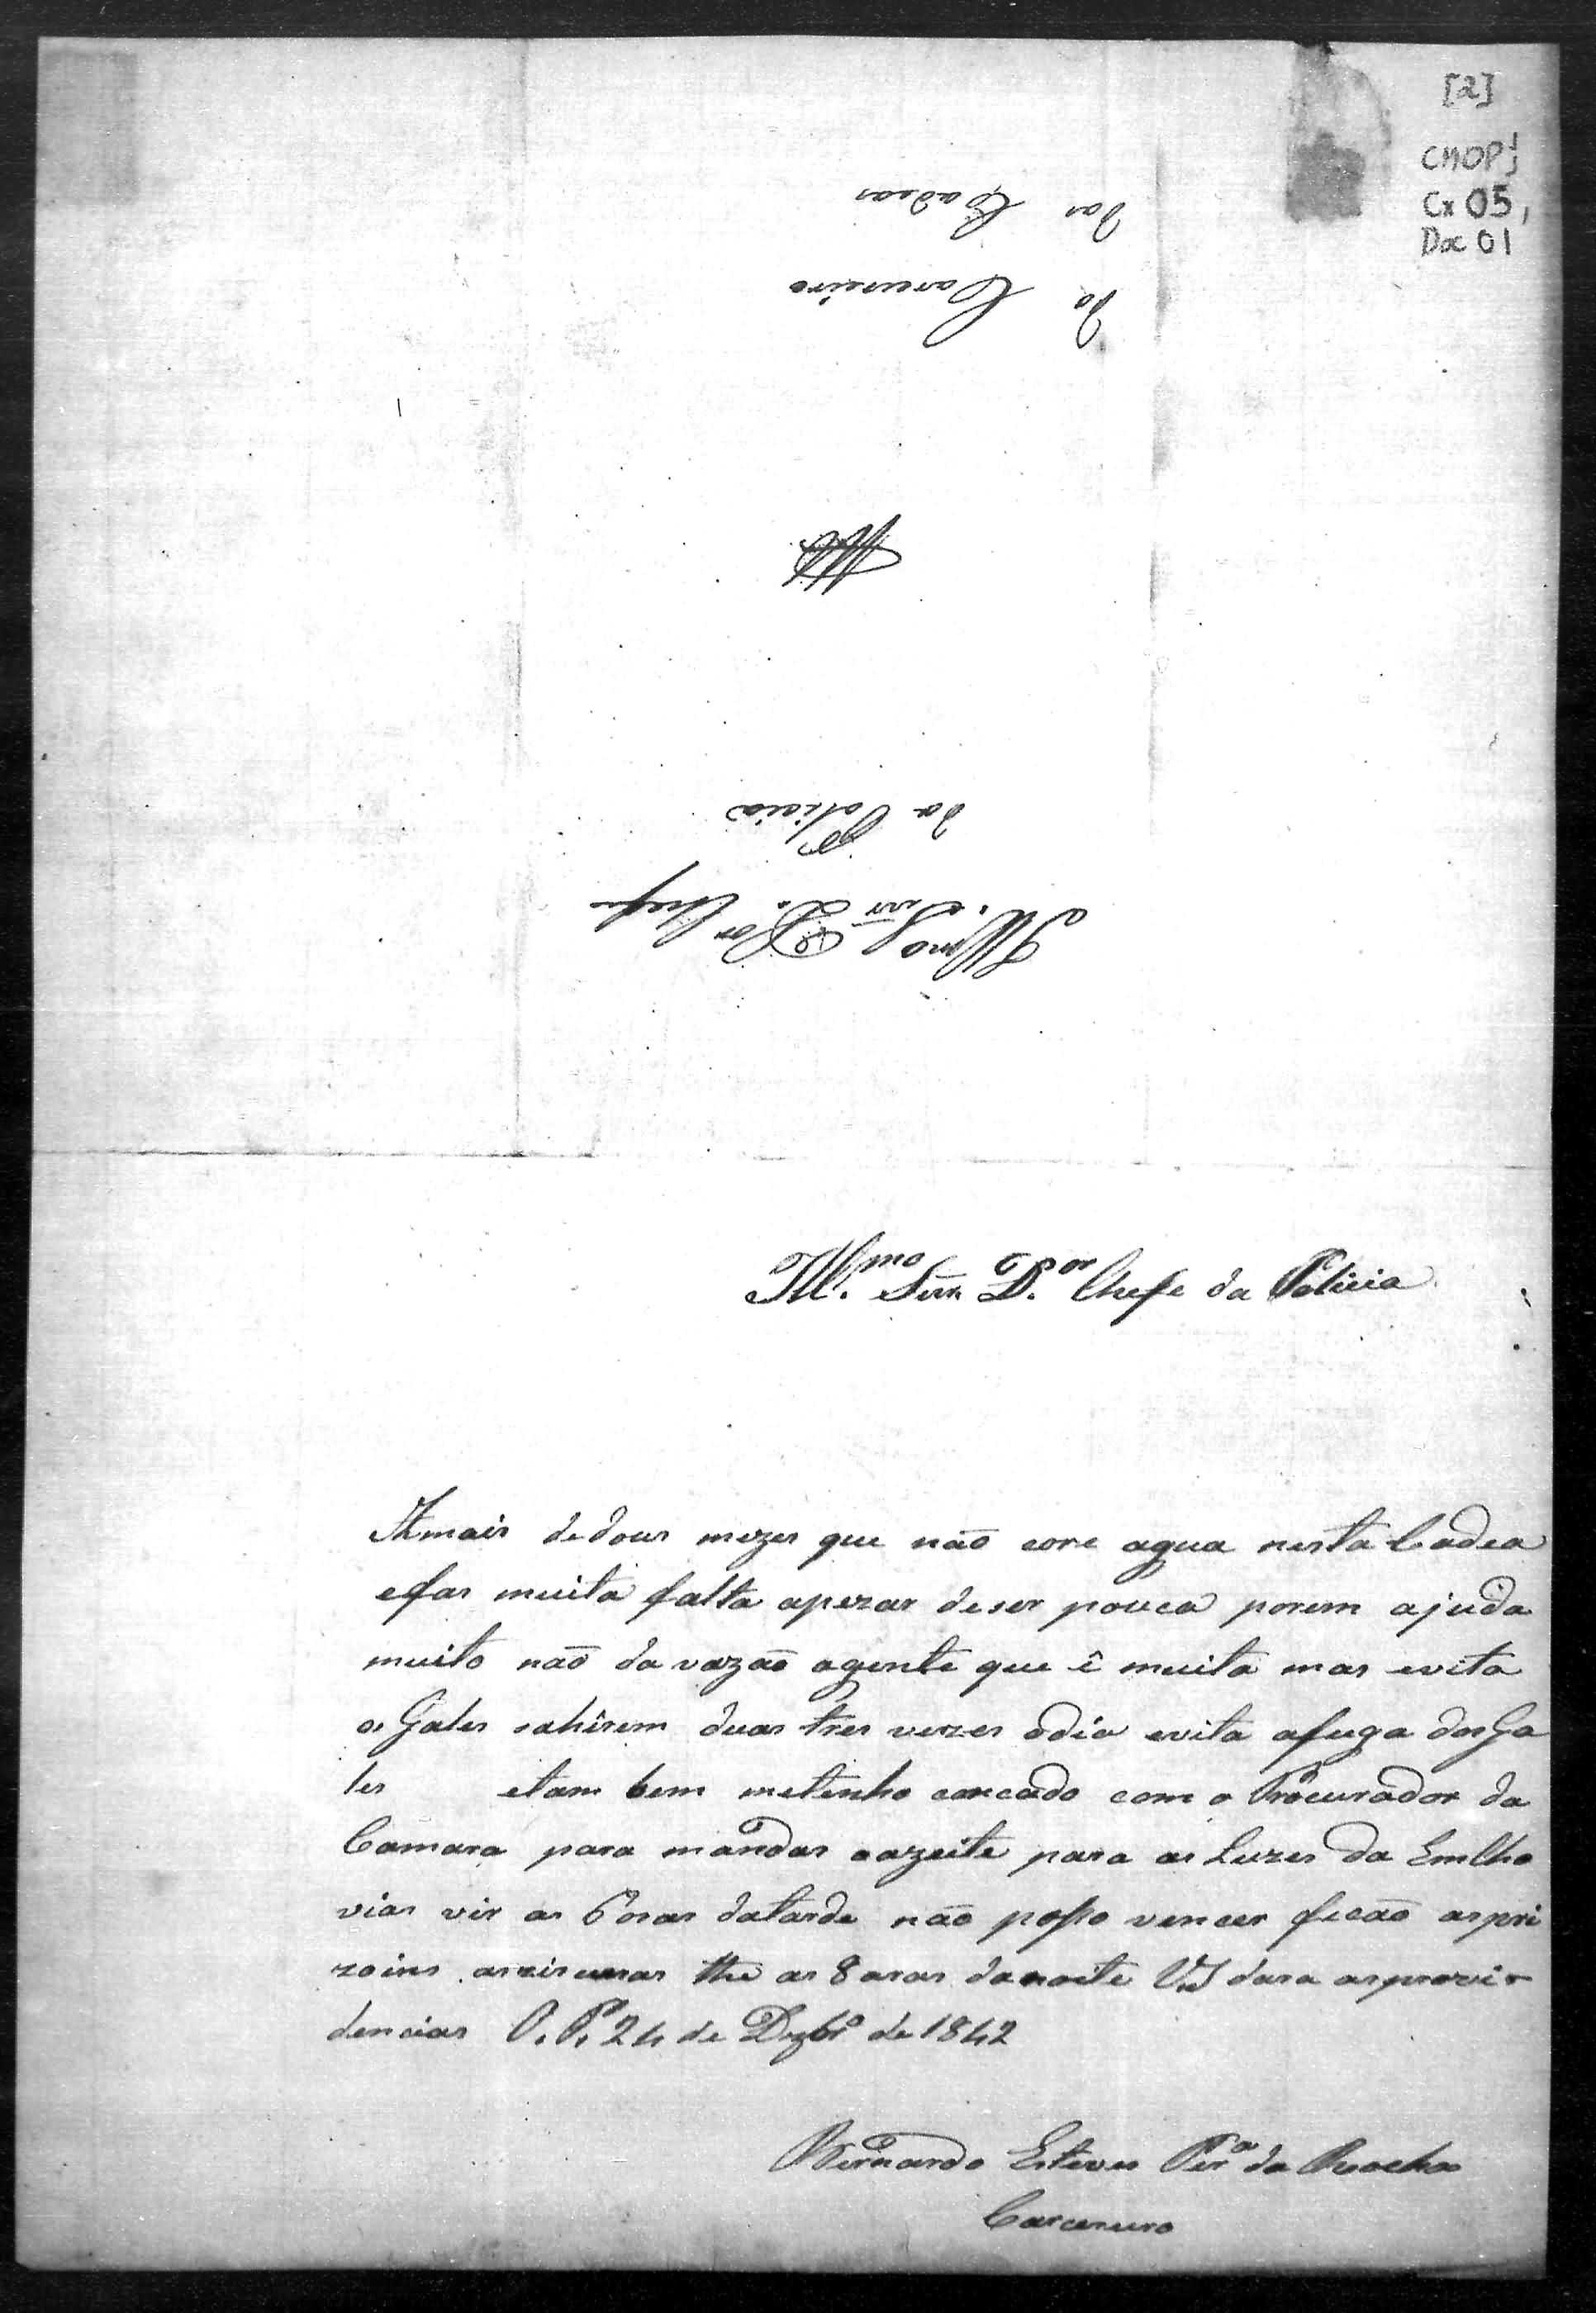 [2]
CMOP
Cx 05,
Doc 01
Do Carcereiro
das Cadeas
Ill.mo Snr D.or Chefe
da Policia
Ill.mo Snr. D.or Chefe da Policia
Amais dedous mezes que não core agua nesta Cadea
efas muita falta apezar deser pouca porem ajuda
muito não da vazaõ agente que ê muita mas evita
os Gales sahirem duas tres vezes odia evita afuga dos Ga
les etam bem metenho cancado com o Procurador da
Camara para mandar oazeite para as Luzes da
vias vir as 6 oras datarde não posso vencer ficaõ aspri
zoins as the as 8 oras danoite VS dara asprovi-
dencias O. P. 24 de Dezbr.o de 1842
Bernardo Esteves Per.a da Rocha
Carcereiro